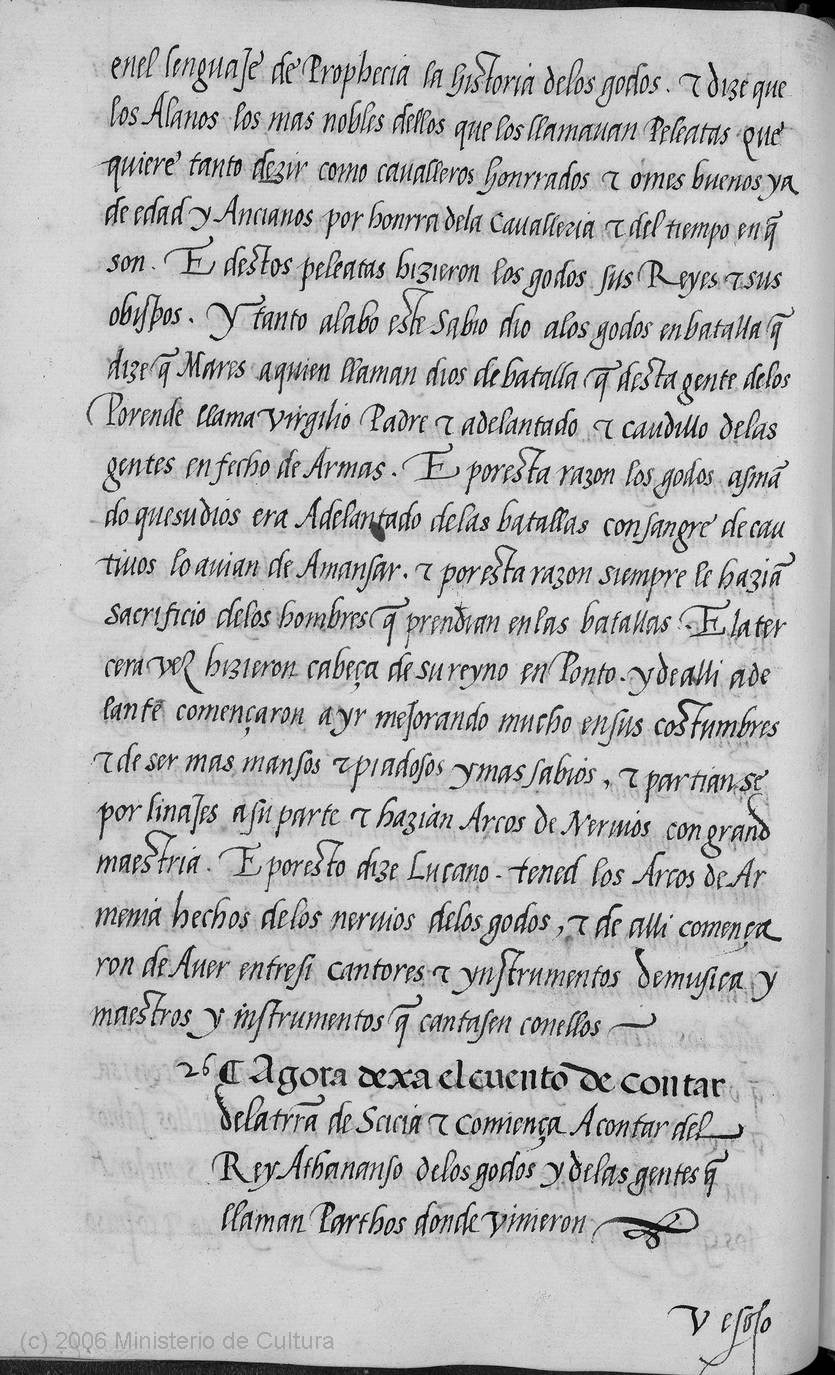 enel lenguaJe de Prophecia la historia delos godos. τ dize que
los Alanos los mas nobles dellos que los llamauan Peleatas que
quiere tanto dezir como caualleros honrrados τ omes buenos ya
de edad y Ancianos por honrra dela Caualleria τ del tiempo en q̃
son. E destos peleatas hizieron los godos sus Reyes τ sus
obispos. Y tanto alabo este Sabio dio alos godos en batalla q̃
dize q̃ Mares aquien llaman dios de batalla q̃ desta gente delos
Porende llama virgilio Padre τ adelantado τ caudillo delas
gentes en fecho de Armas. E poresta razon los godos asmã
do quesudios era Adelantado delas batallas con sangre de cau
tiuos lo auian de Amansar. τ poresta razon siempre le haziã
sacrificio delos hombres q̃ prendian en las batallas. E la ter
cera vez hizieron cabeça de su reyno en Ponto. y de alli ade
lante començaron a yr meJorando mucho en sus costumbres
τ de ser mas mansos τ piadosos y mas sabios, τ partian se
por linaJes a su parte τ hazian Arcos de Neruios con grand
maestria. E poresto dize Lucano. tened los Arcos de Ar
menia hechos delos neruios delos godos, τ de alli começa
ron de Auer entresi cantores τ ynstrumentos de musica y
maestros y instrumentos q̃ cantasen conellos
26 ¶ Agora dexa el cuento de contar
dela trrã de Scicia τ comiença A contar del
Rey Athananso delos godos y delas gentes q̃
llaman Parthos donde vinieron
V esoso
(c) 2006 Ministerio de Cultura